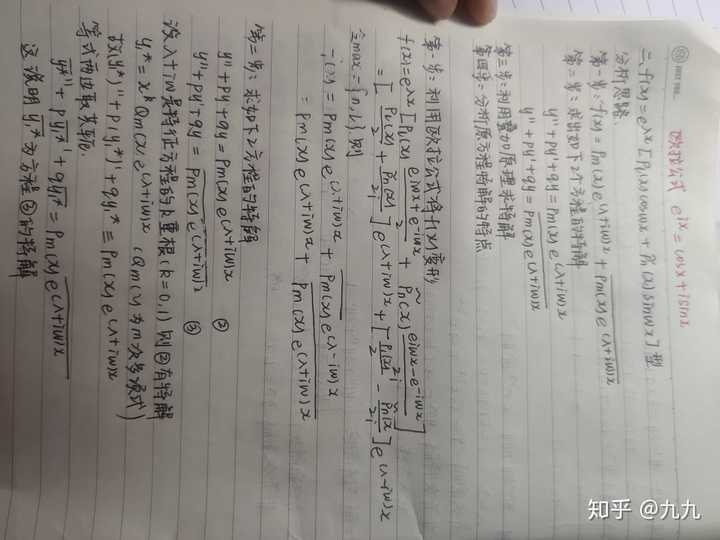 欧拉公式 e^{ix} = cosx + isinx
二、f(x) = e^{λx}[P_l(x)cosωx + P̃_n(x)sinωx]型
分析思路
第一步:f(x) = P_m(x)e^{(λ+iω)x} + \overline{P_m(x)e^{(λ+iω)x}}
第二步:求出如下2个方程的特解
y''+py'+qy = P_m(x)e^{(λ+iω)x}
y''+py'+qy = \overline{P_m(x)e^{(λ+iω)x}}
第三步:利用叠加原理求特解
第四步:分析原方程特解的特点
第一步:利用欧拉公式将f(x)变形
f(x) = e^{λx}[P_l(x) \frac{e^{iωx}+e^{-iωx}}{2} + P̃_n(x) \frac{e^{iωx}-e^{-iωx}}{2i}]
= [\frac{P_l(x)}{2} + \frac{P̃_n(x)}{2i}]e^{(λ+iω)x} + [\frac{P_l(x)}{2} - \frac{P̃_n(x)}{2i}]e^{(λ-iω)x}
令max={n,l}则
f(x) = P_m(x)e^{(λ+iω)x} + \overline{P_m(x)}e^{(λ-iω)x}
= P_m(x)e^{(λ+iω)x} + \overline{P_m(x)e^{(λ+iω)x}}
第二步:求如下2方程的特解
y''+py'+qy = P_m(x)e^{(λ+iω)x} ②
y''+py'+qy = \overline{P_m(x)e^{(λ+iω)x}} ③
设λ+iω是特征方程的k重根(k=0,1)则②有特解
y_1^* = x^k Q_m(x)e^{(λ+iω)x} (Q_m(x)为m次多项式)
故(y_1^*)''+p(y_1^*)'+qy_1^* ≡ P_m(x)e^{(λ+iω)x}
等式两边取共轭
\overline{y_1^*}''+p\overline{y_1^*}'+q\overline{y_1^*} ≡ \overline{P_m(x)e^{(λ+iω)x}}
这说明\overline{y_1^*}为方程③的特解
知乎 @九九